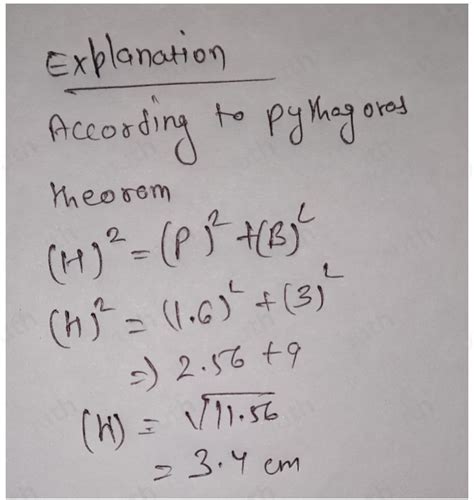 Explanation
According to pythagoras
theorom
(H)² = (P)² + (B)²
(h)² = (1.6)² + (3)²
=) 2.56 + 9
(H) = √11.56
= 3.4 cm